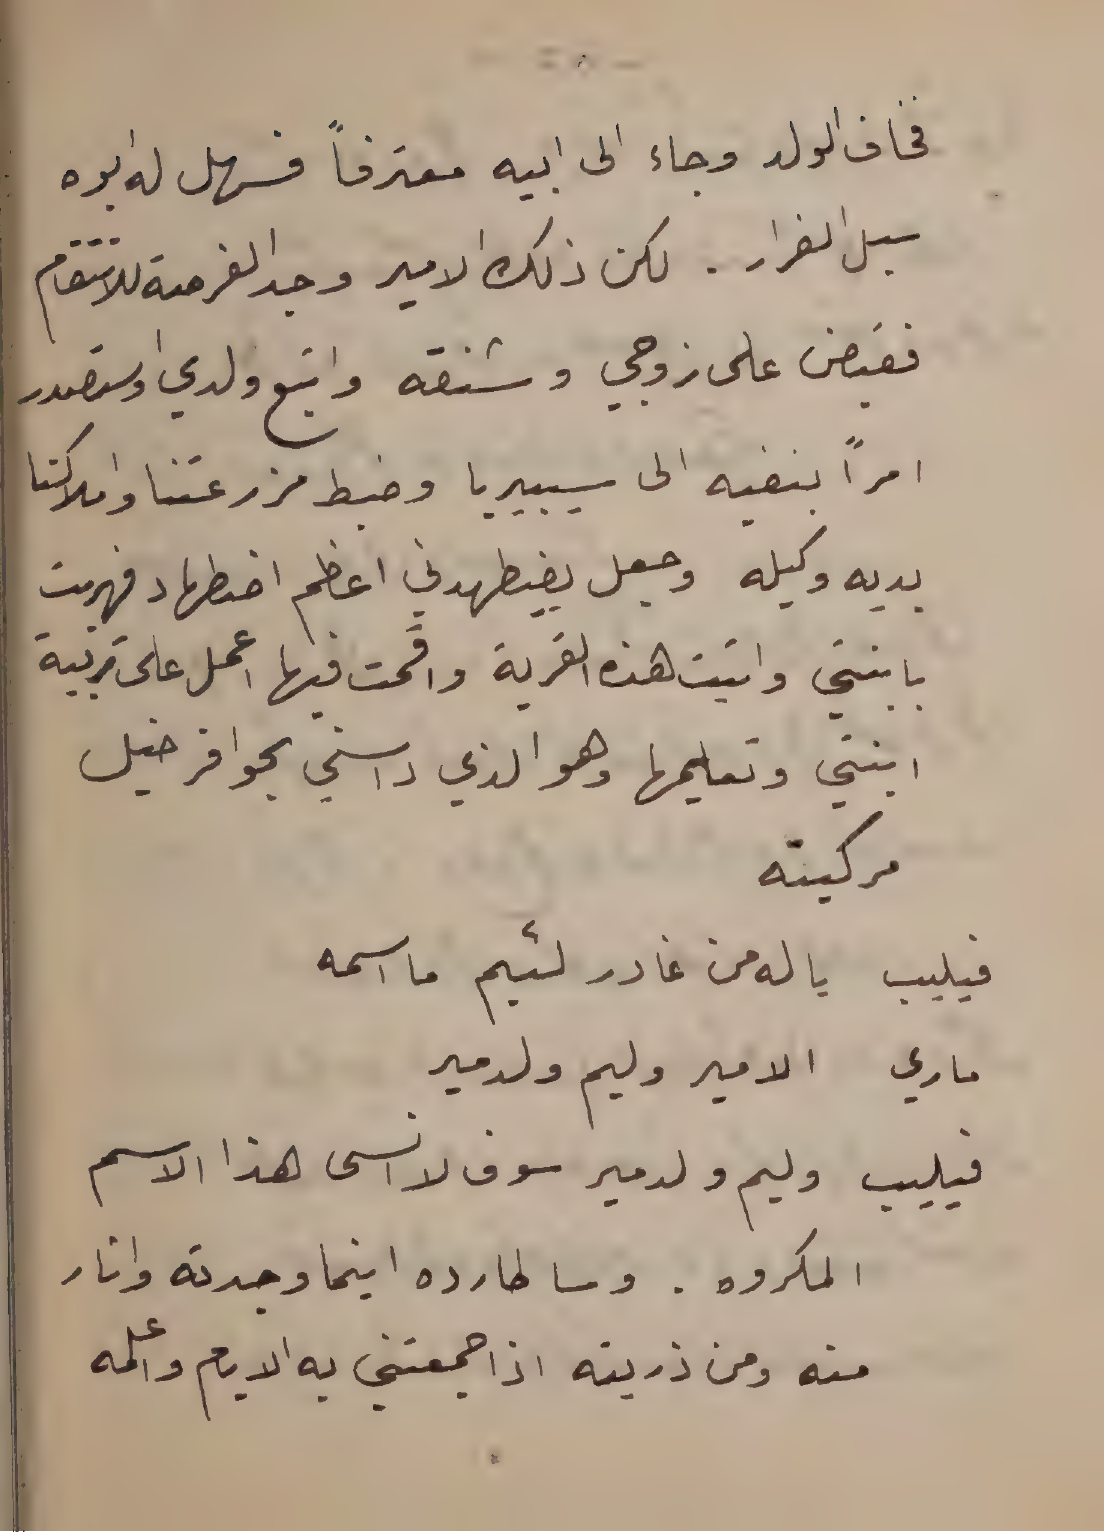 فخاف الولد وجاء الى ابيه معترفاً فسهل له ابوه
سبل الفرار . لكن ذلك الامير وجد الفرصة للانتقام
فقبض على زوجي وشنقه واتبع ولدي واستصدر
امراً بنفيه الى سيبيريا وضبط مزرعتنا واملاكنا
بديه وكيله وجعل يضطهدني اعظم اضطهاد فهربت
بابنتي واتيت هذه القرية واقمت فيها اعمل على تربية
ابنتي وتعليمها وهو الذي داسني بحوافر خيل
مركبته
فيليب يا له من غادر لئيم ما اسمه
ماري الامير وليم ولدمير
فيليب وليم ولدمير سوف لا انسى هذا الاسم
المكروه . وساطارده اينما وجدته واثار
منه ومن ذريته اذا جمعتني به الايام واعلمه